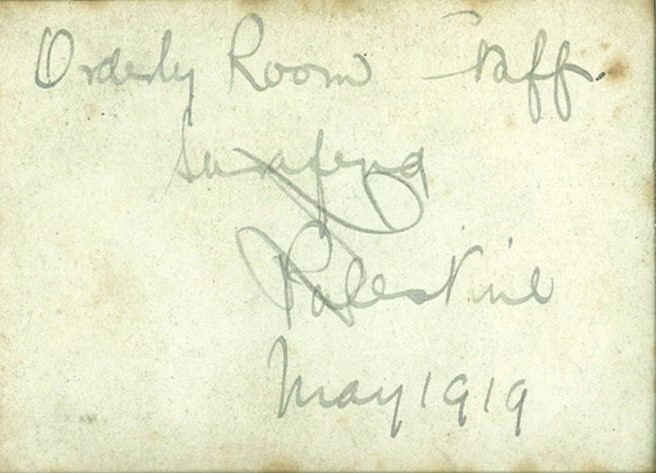 Orderly Room Staff.
Sarafend
Palestine
May 1919